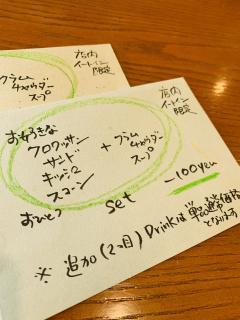 クラム
チャウダー
スープ
店内
イートイン
限定
店内
イートイン
限定
お好きな
クロワッサン
サンド
キッシュ
スコーン
おひとつ
+ クラム
チャウダー
スープ
set
-100yen
※ 追加(2つ目)Drinkは単品通常価格
となります